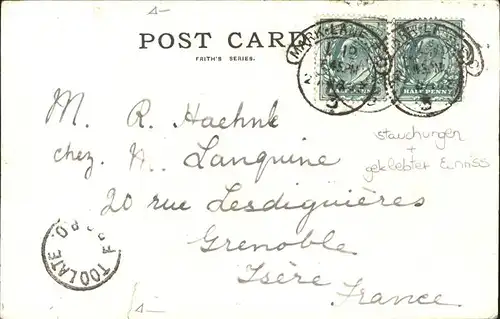 POST CARD
FRITH'S SERIES.
MARK-LANE
HALFPENNY
HALFPENNY
M. R. Haehnl
chez. A. Lanquine
20 rue Lesdiguières
Grenoble
Isère
France
stauchungen
+
geklebter Einriss
TOO LATE